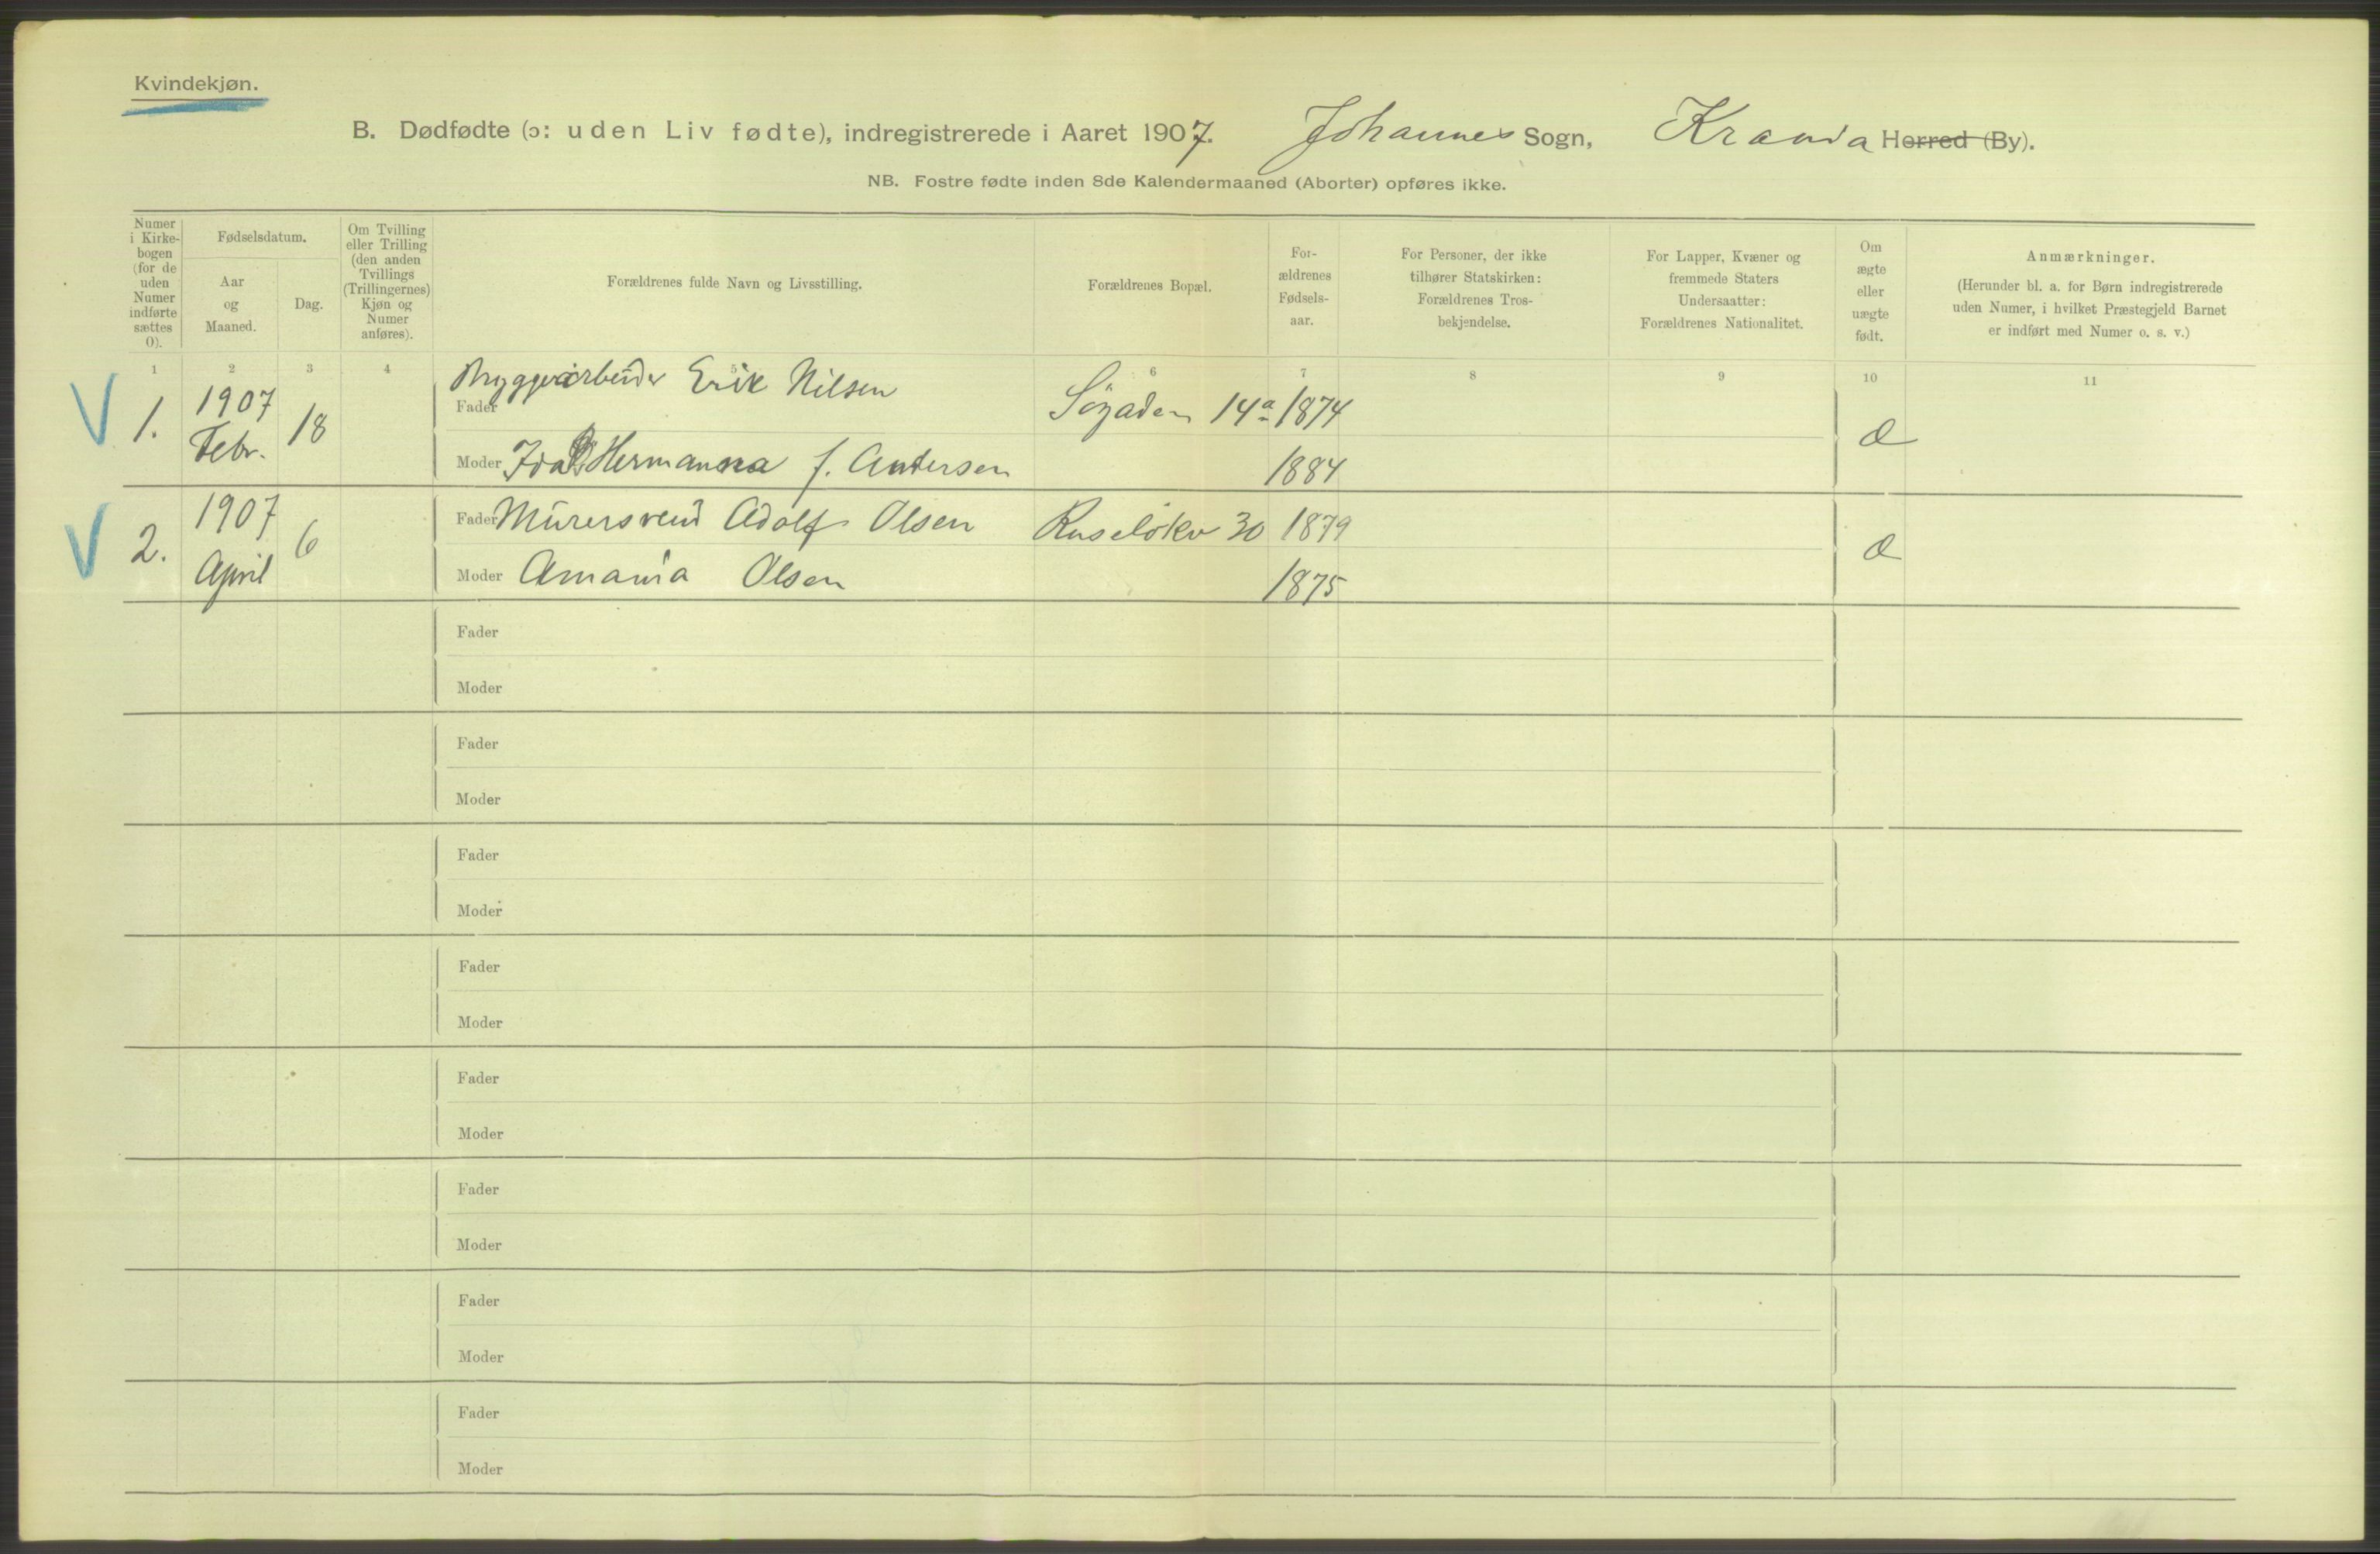 Kvindekjøn.
B. Dødfødte (ɔ: uden Liv fødte), indregistrerede i Aaret 1907. Johannes Sogn, Kra Herred (By).
NB. Fostre fødte inden 8de Kalendermaaned (Aborter) opføres ikke.
Numer i Kirke-bogen (for de uden Numer indførte sættes 0).
Fødselsdatum.
Aar og Maaned.
Dag.
Om Tvilling eller Trilling (den anden Tvillings (Trillingernes) Kjøn og Numer anføres).
Forældrenes fulde Navn og Livsstilling.
Forældrenes Bopæl.
For-ældrenes Fødsels-aar.
For Personer, der ikke tilhører Statskirken: Forældrenes Tros-bekjendelse.
For Lapper, Kvæner og fremmede Staters Undersaatter: Forældrenes Nationalitet.
Om ægte eller uægte født.
Anmærkninger.
(Herunder bl. a. for Børn indregistrerede uden Numer, i hvilket Præstegjeld Barnet er indført med Numer o. s. v.)
1 2 3 4 5 6 7 8 9 10 11
V 1. 1907 Febr. 18
Fader Bryggeriarbeider Erik Nilsen Sögaden 14a 1874
Moder Ida Hermanna f. Andersen 1884
V 2. 1907 April 6
Fader Murersvend Adolf Olsen Ruselökv 30 1879
Moder Amanda Olsen 1875
Fader
Moder
Fader
Moder
Fader
Moder
Fader
Moder
Fader
Moder
Fader
Moder
Fader
Moder
Fader
Moder